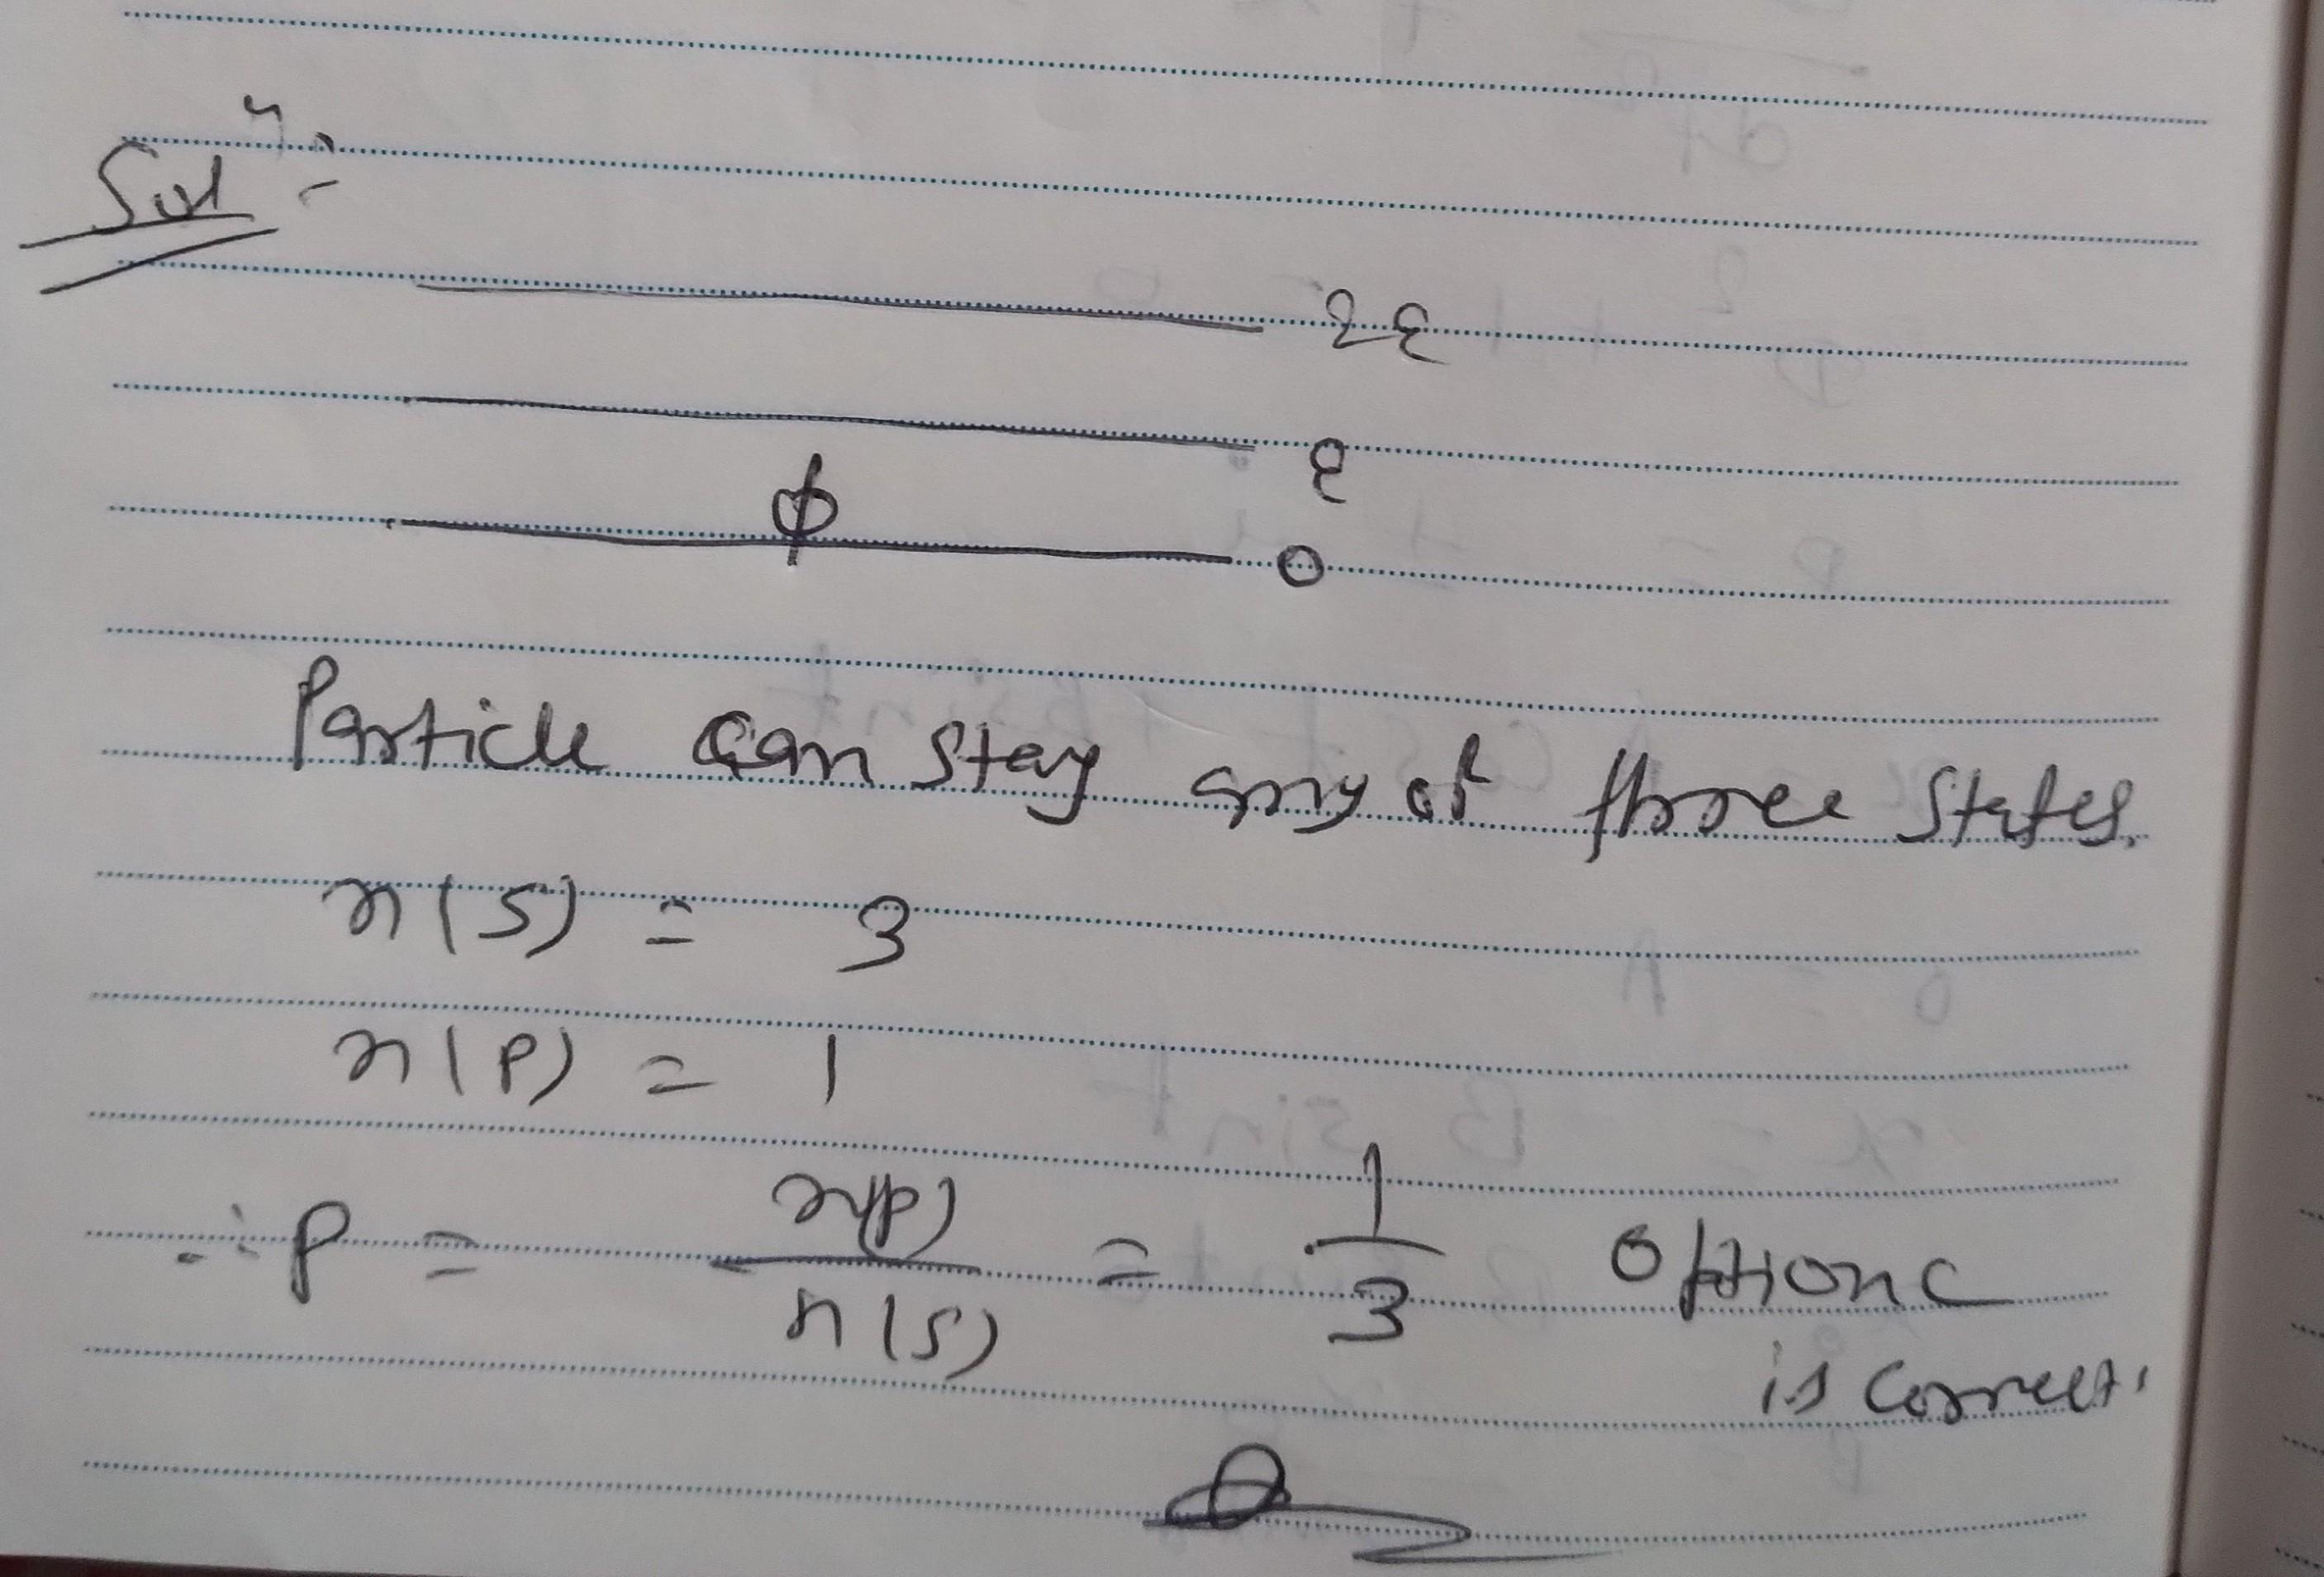 Solⁿ:-
2ε
ε
0
Particle can stay any of three states.
n(S) = 3
n(P) = 1
∴ P = n(P) / n(S) = 1/3 Option C
is correct.